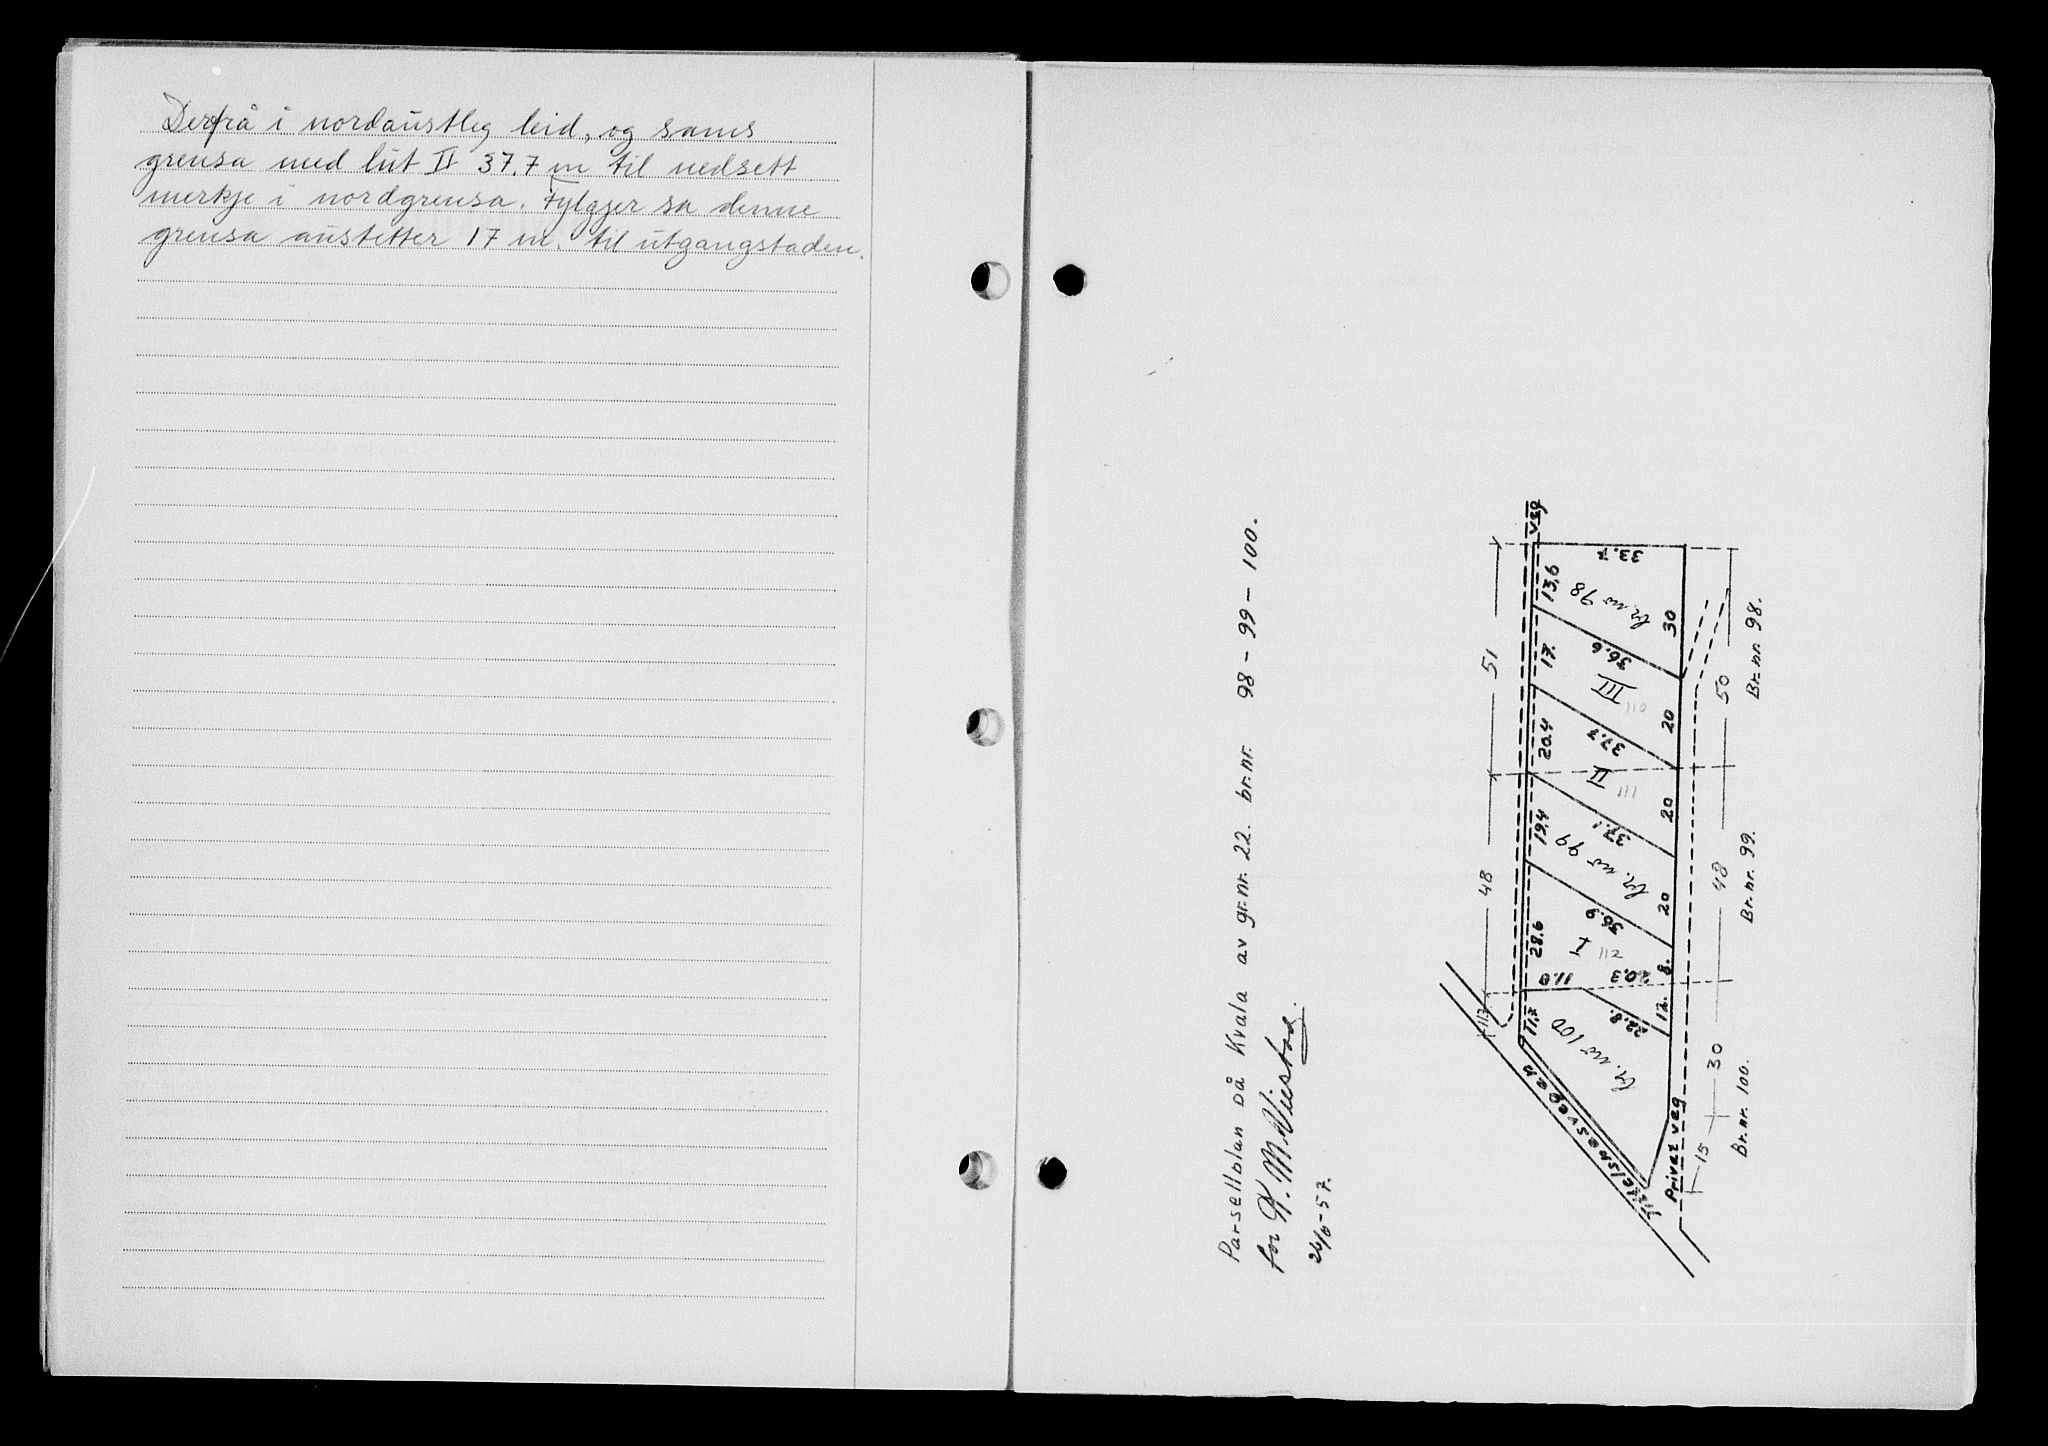 Derfrå i nordaustleg leid, og sams
grensa med lut II 37.7 m til nedsett
merkje i nordgrensa. Fylgjer sa denne
grensa austetter 17 m. til utgangstaden.
Parsellplan på Kvala av gr.nr. 22. br.nr. 98 – 99 – 100.
for K. M. Viestad.
26/6-57.
11.3 48 51
veg
11,7 28.6 19,4 20.4 17. 13,6
br. nr 100 22.8. 11.0 20.3 I 112 36.9 br. nr 99 37.1 II 111 37.7 III 110 36.6 br. nr 98 33.7
12. 8. 20 20 20 30
Privat veg
15 30 48 50
Br. nr. 100. Br. nr. 99. Br. nr. 98.